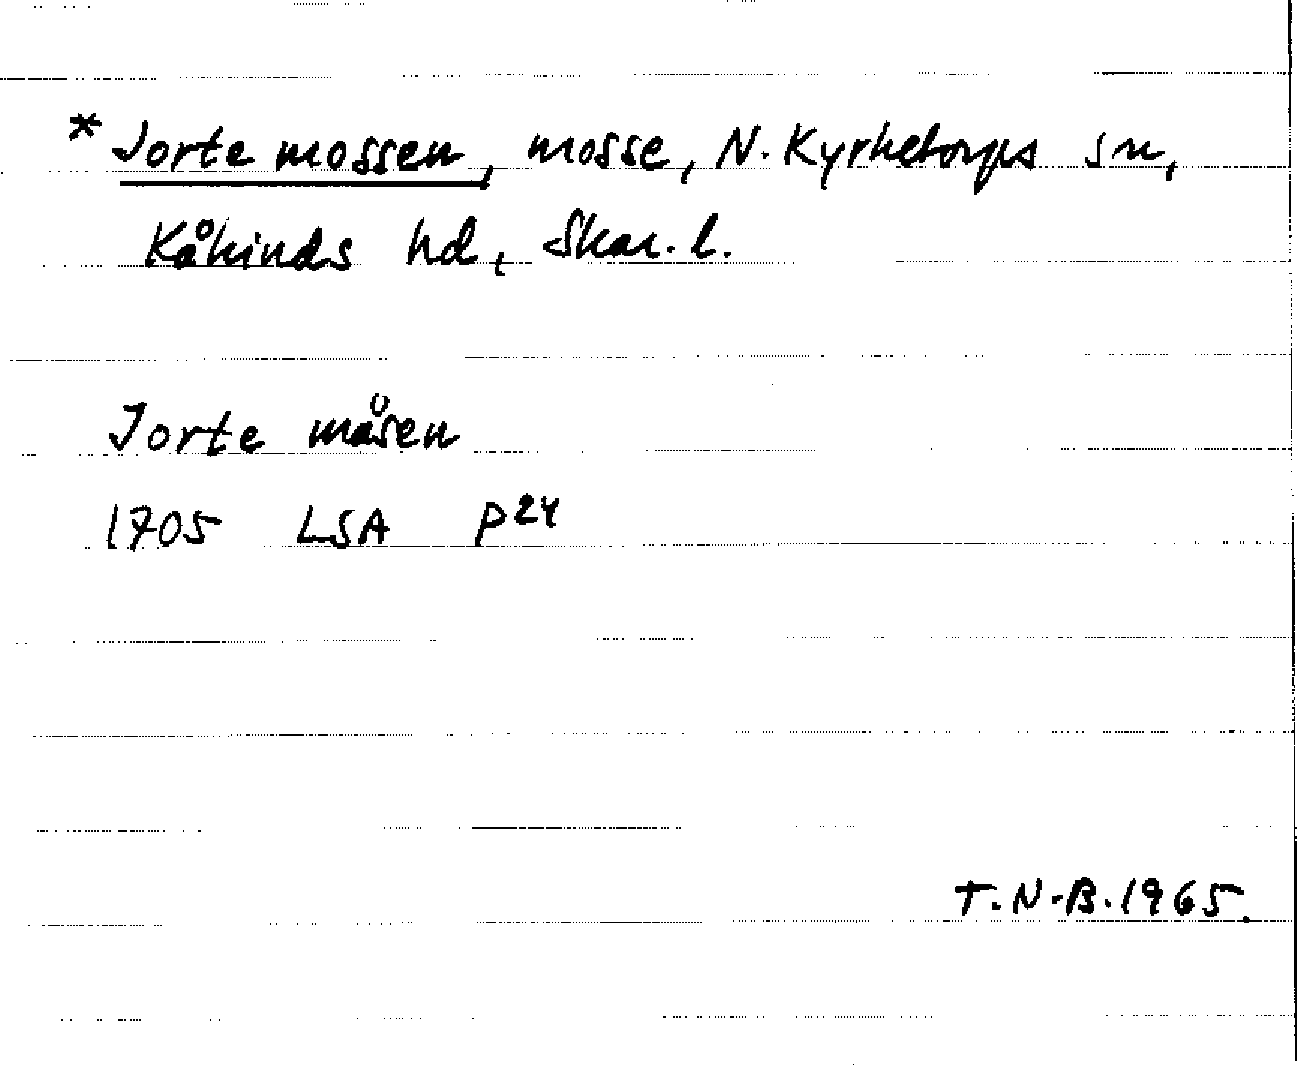 * Jorte mossen, mosse, N. Kyrketorps sn,
Kåkinds hd, Skar. l.
Jorte måsen
1705 LSA P24
T.N-B.1965.